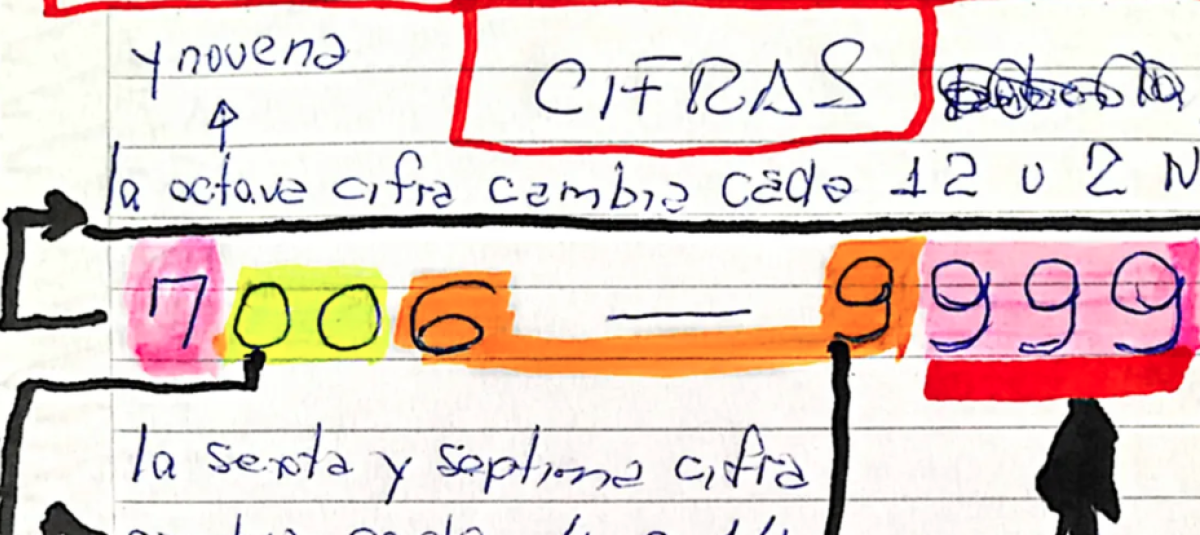 y novena
CIFRAS
la octava cifra cambia cada 12 o 2 N
7 0 0 6 — 9 9 9 9
la sexta y septima cifra
cada